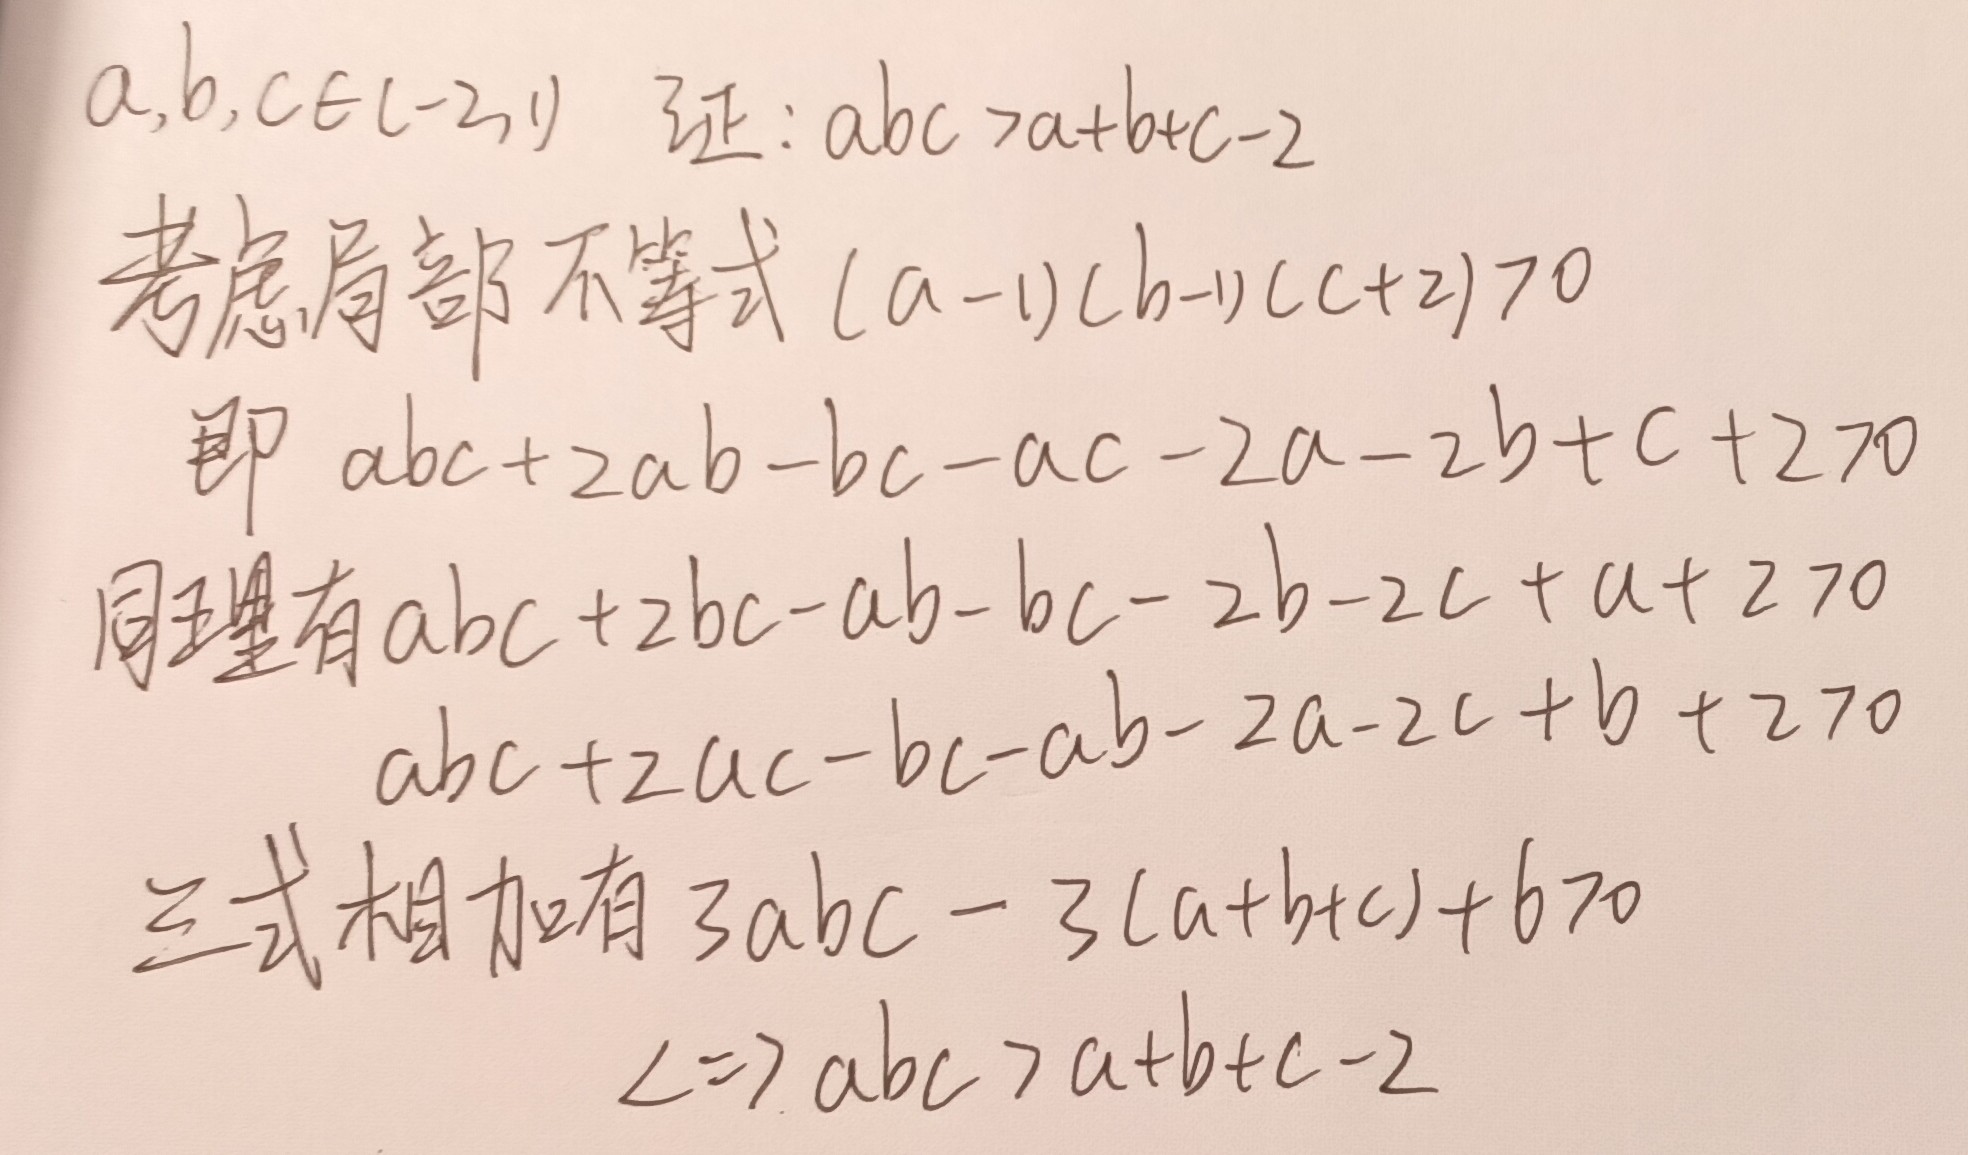 a,b,c∈(-2,1) 证:abc>a+b+c-2
考虑局部不等式(a-1)(b-1)(c+2)>0
即 abc+2ab-bc-ac-2a-2b+c+2>0
同理有abc+2bc-ab-bc-2b-2c+a+2>0
abc+2ac-bc-ab-2a-2c+b+2>0
三式相加有3abc-3(a+b+c)+6>0
<=>abc>a+b+c-2